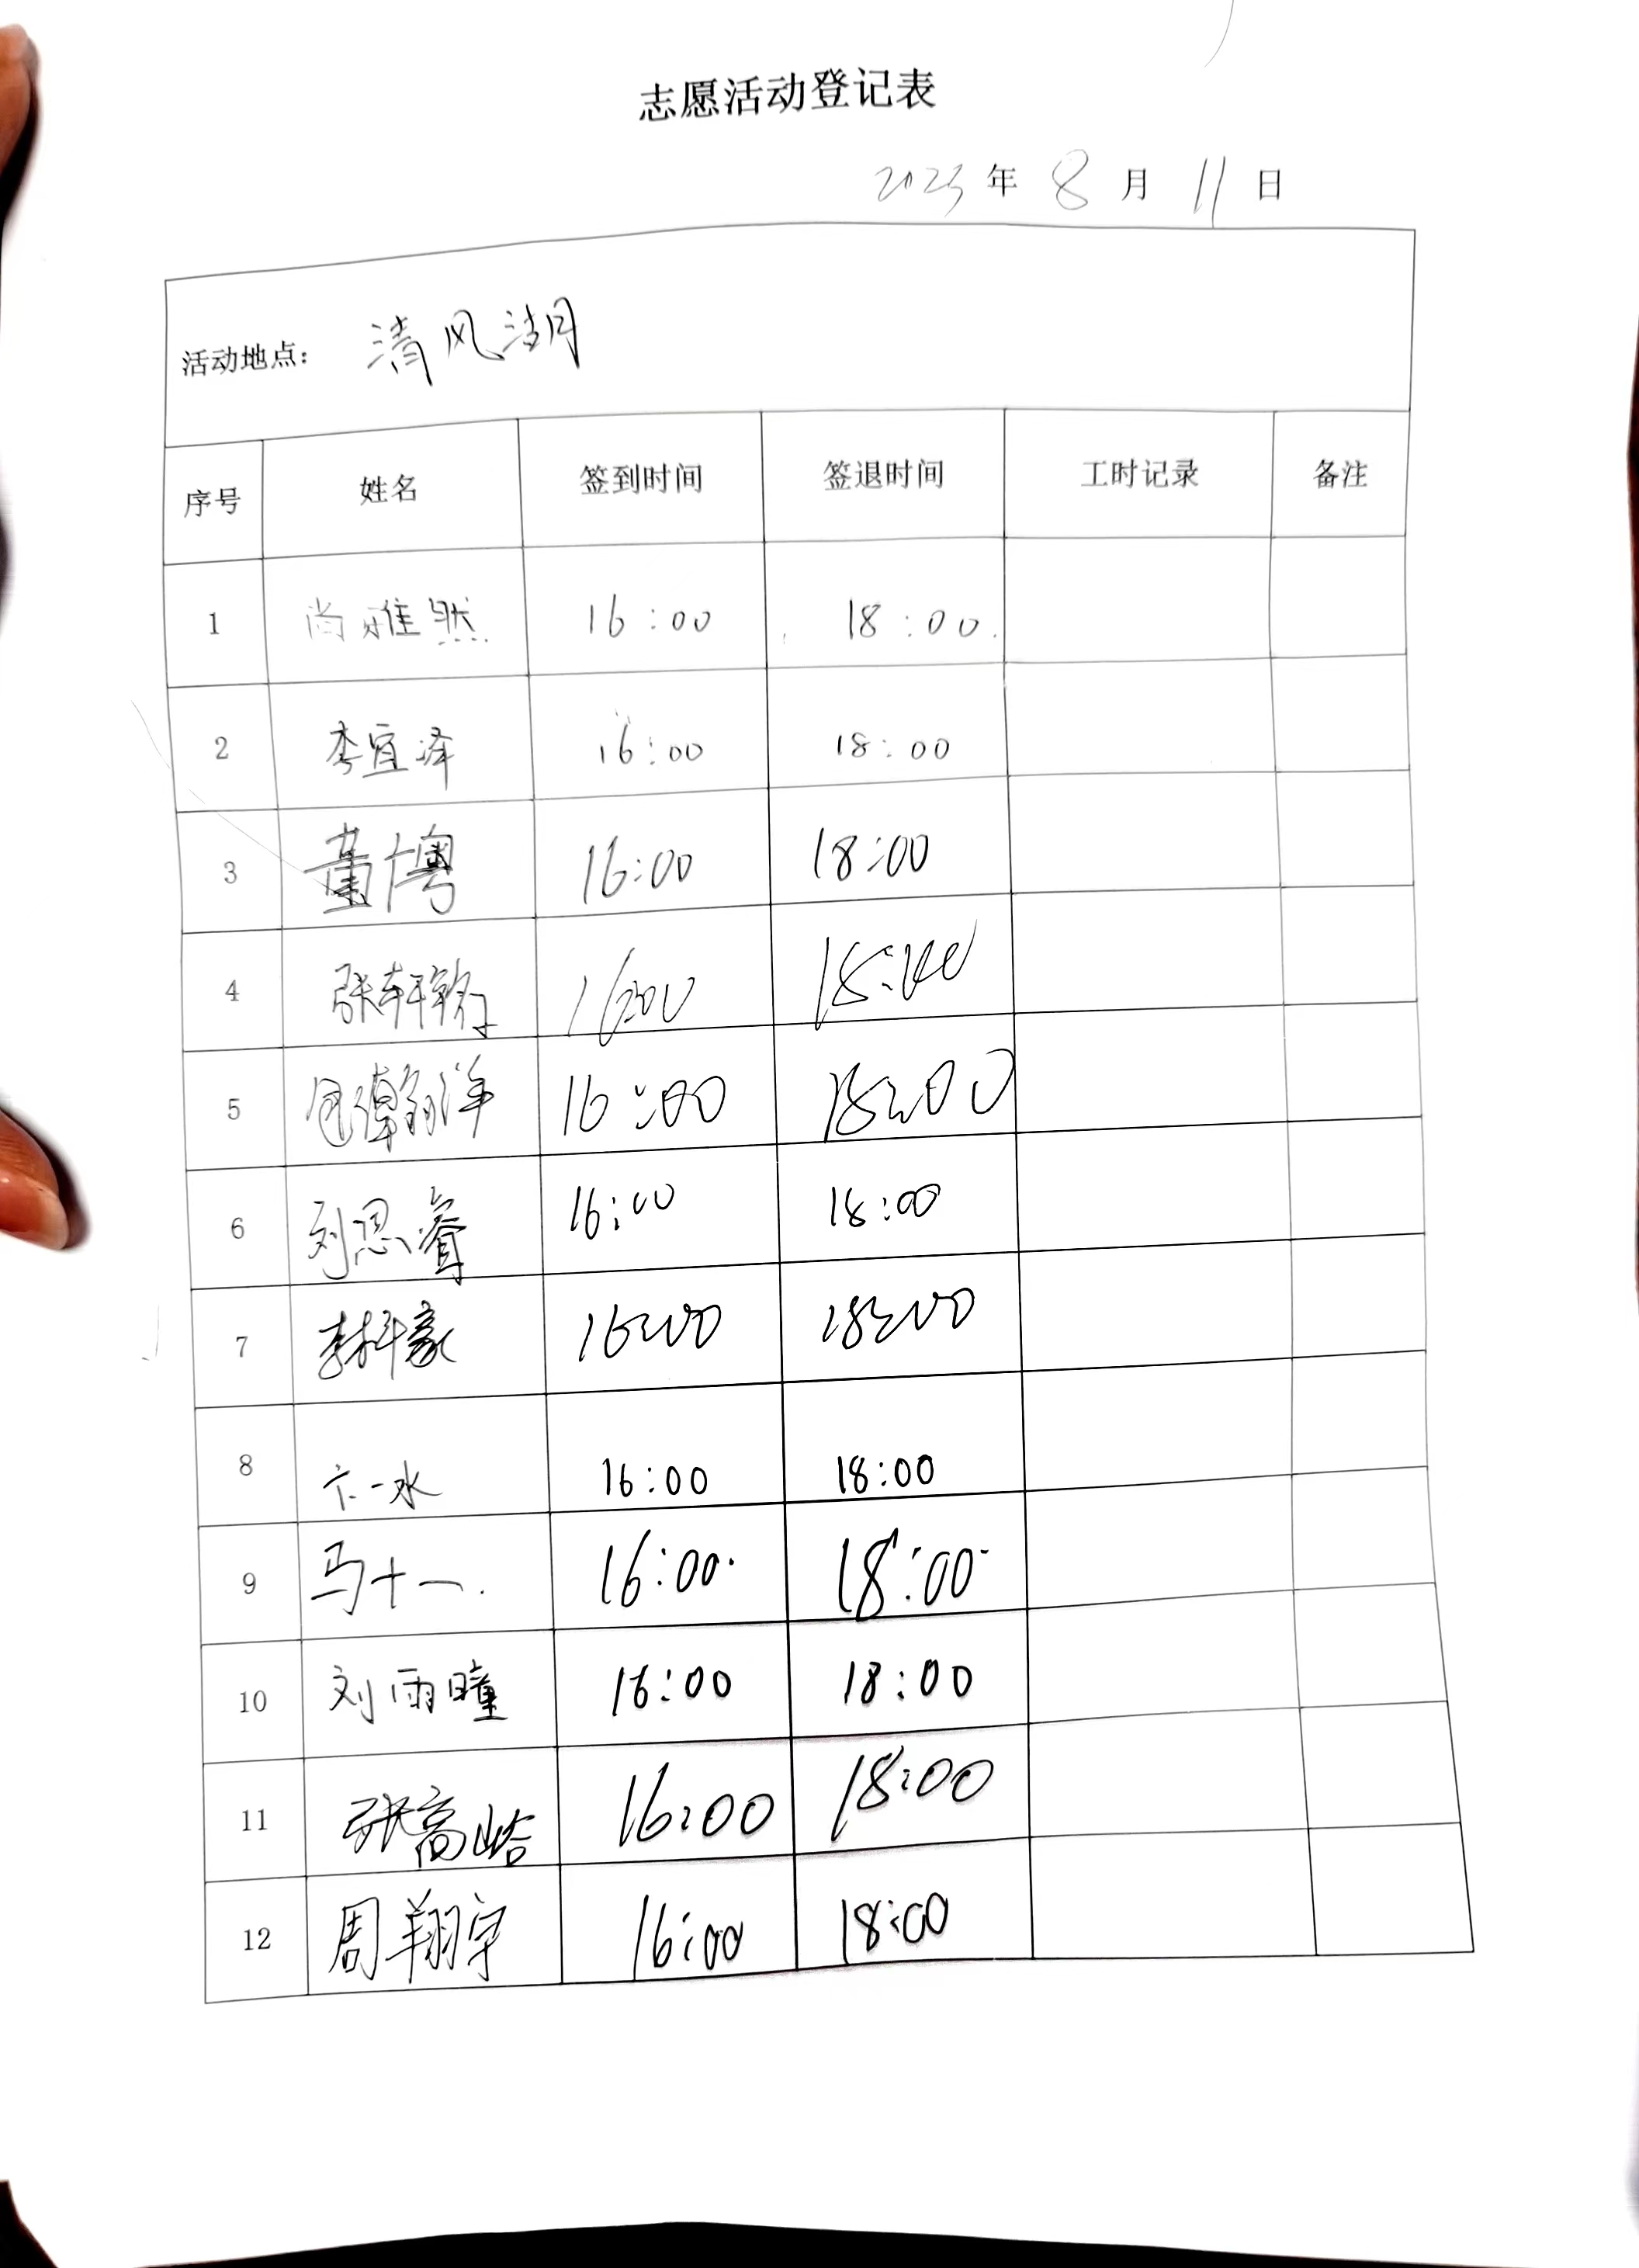 志愿活动登记表
2023 年 8 月 11 日
活动地点： 清风湖
序号 姓名 签到时间 签退时间 工时记录 备注
1 尚雅然 16:00 18:00
2 李宜泽 16:00 18:00
3 董博粤 16:00 18:00
4 张轩 16:00 18:00
5 瀚洋 16:00 18:00
6 刘思睿 16:00 18:00
7 李科豪 16:00 18:00
8 卞一水 16:00 18:00
9 马十一 16:00 18:00
10 刘雨瞳 16:00 18:00
11 张高峪 16:00 18:00
12 周翔宇 16:00 18:00